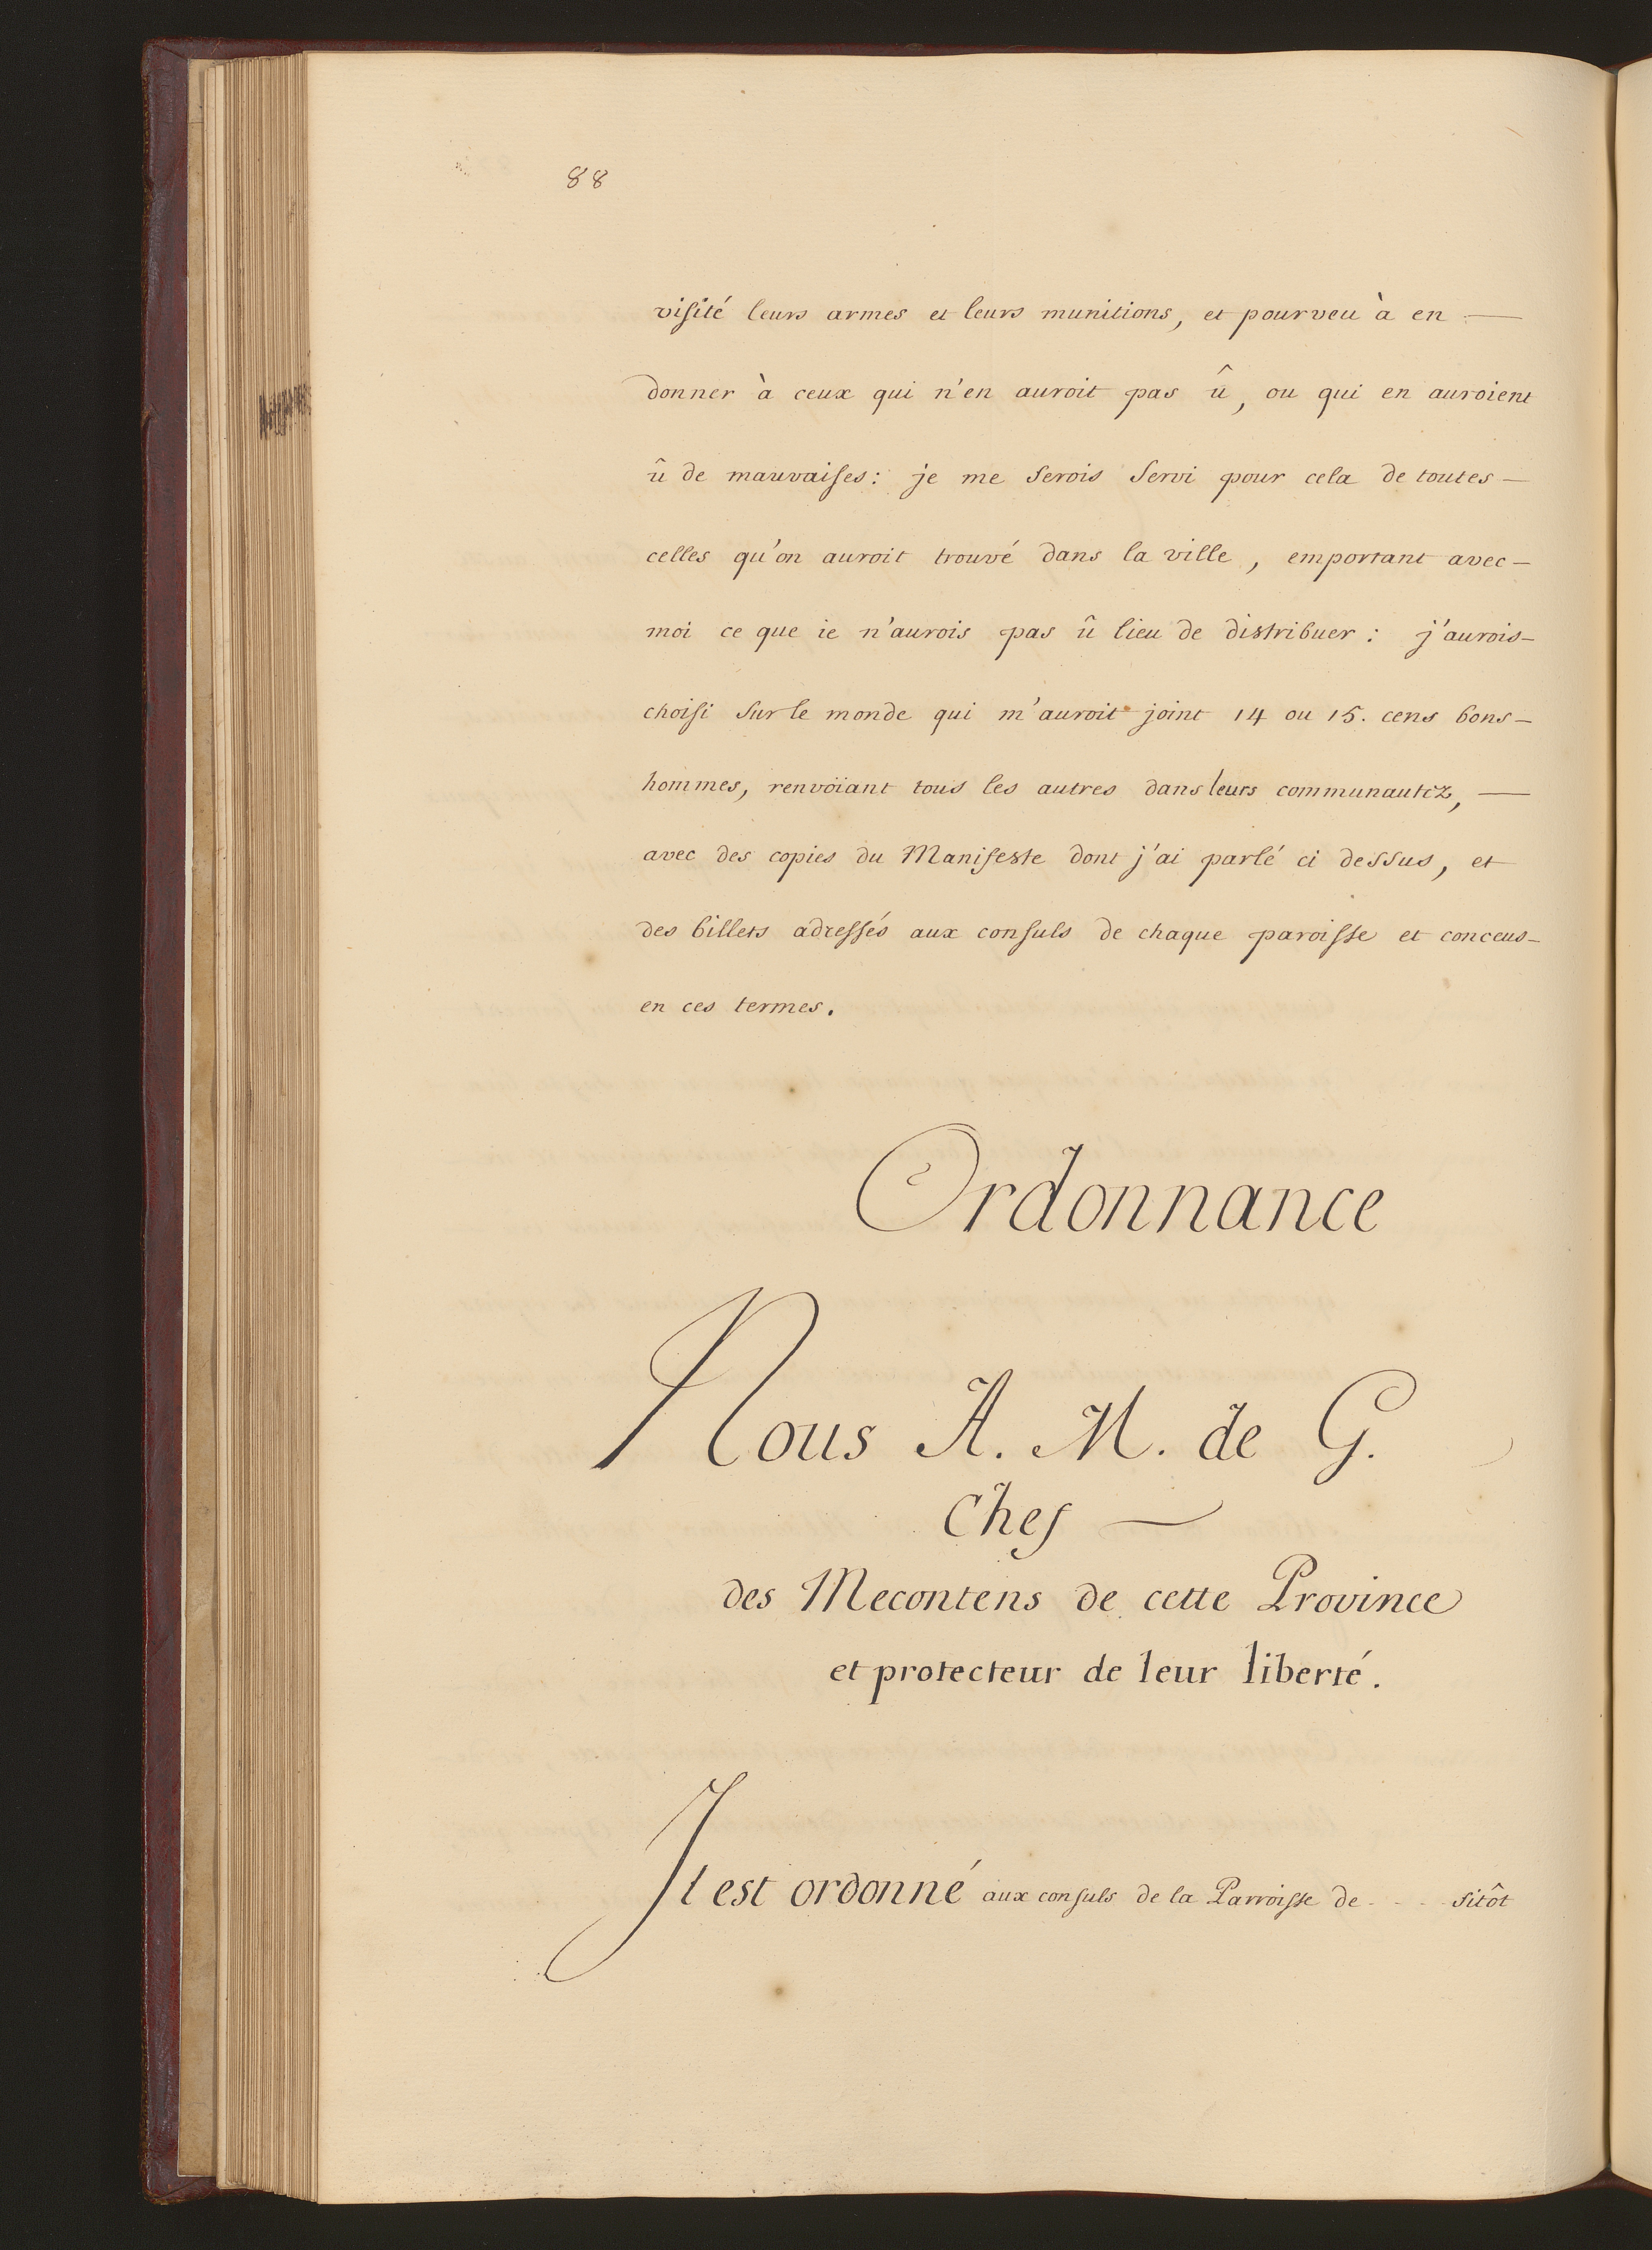 88
visité leurs armes et leurs munitions, et pourveu à en —
donner à ceux qui n'en auroit pas û, ou qui en auroient
û de mauvaises: je me serois servi pour cela de toutes —
celles qu'on auroit trouvé dans la ville, emportant avec —
moi ce que ie n'aurois pas û lieu de distribuer: j'aurois —
choisi sur le monde qui m'auroit joint 14 ou 15. cens bons —
hommes, renvoïant tous les autres dans leurs communautez, —
avec des copies du Manifeste dont j'ai parlé ci dessus, et
des billets adressés aux consuls de chaque paroisse et conceus —
en ces termes.
Ordonnance
Nous A. M. de G.
Chef —
des Mecontens de cette Province
et protecteur de leur liberté.
Il est ordonné aux consuls de la Parroisse de - - - - sitôt